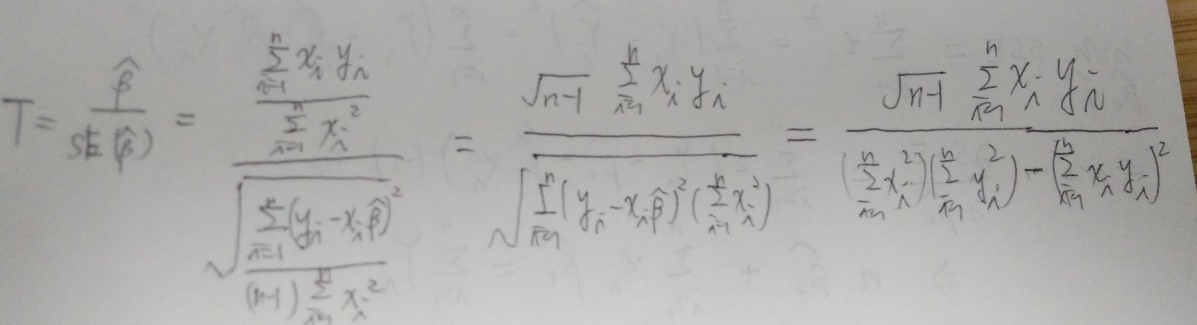 T = \frac{\hat{β}}{SE(\hat{β})} = \frac{\frac{\sum_{i=1}^{n} x_i y_i}{\sum_{i=1}^{n} x_i^2}}{\sqrt{\frac{\sum_{i=1}^{n} (y_i - x_i \hat{β})^2}{(n-1) \sum_{i=1}^{n} x_i^2}}} = \frac{\sqrt{n-1} \sum_{i=1}^{n} x_i y_i}{\sqrt{\sum_{i=1}^{n} (y_i - x_i \hat{β})^2 (\sum_{i=1}^{n} x_i^2)}} = \frac{\sqrt{n-1} \sum_{i=1}^{n} x_i y_i}{(\sum_{i=1}^{n} x_i^2)(\sum_{i=1}^{n} y_i^2) - (\sum_{i=1}^{n} x_i y_i)^2}